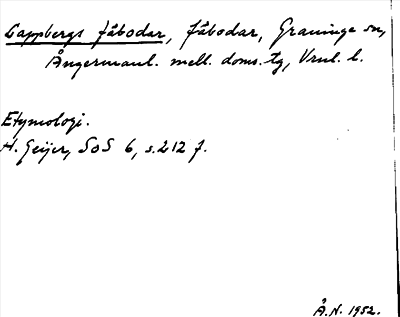 Lappbergs fäbodar, fäbodar, Graninge sn,
Ångermanl. mell. doms. tg, Vrnl. l.
Etymologi.
H. Geijer, SoS 6, s. 212 f.
Å.N. 1952.